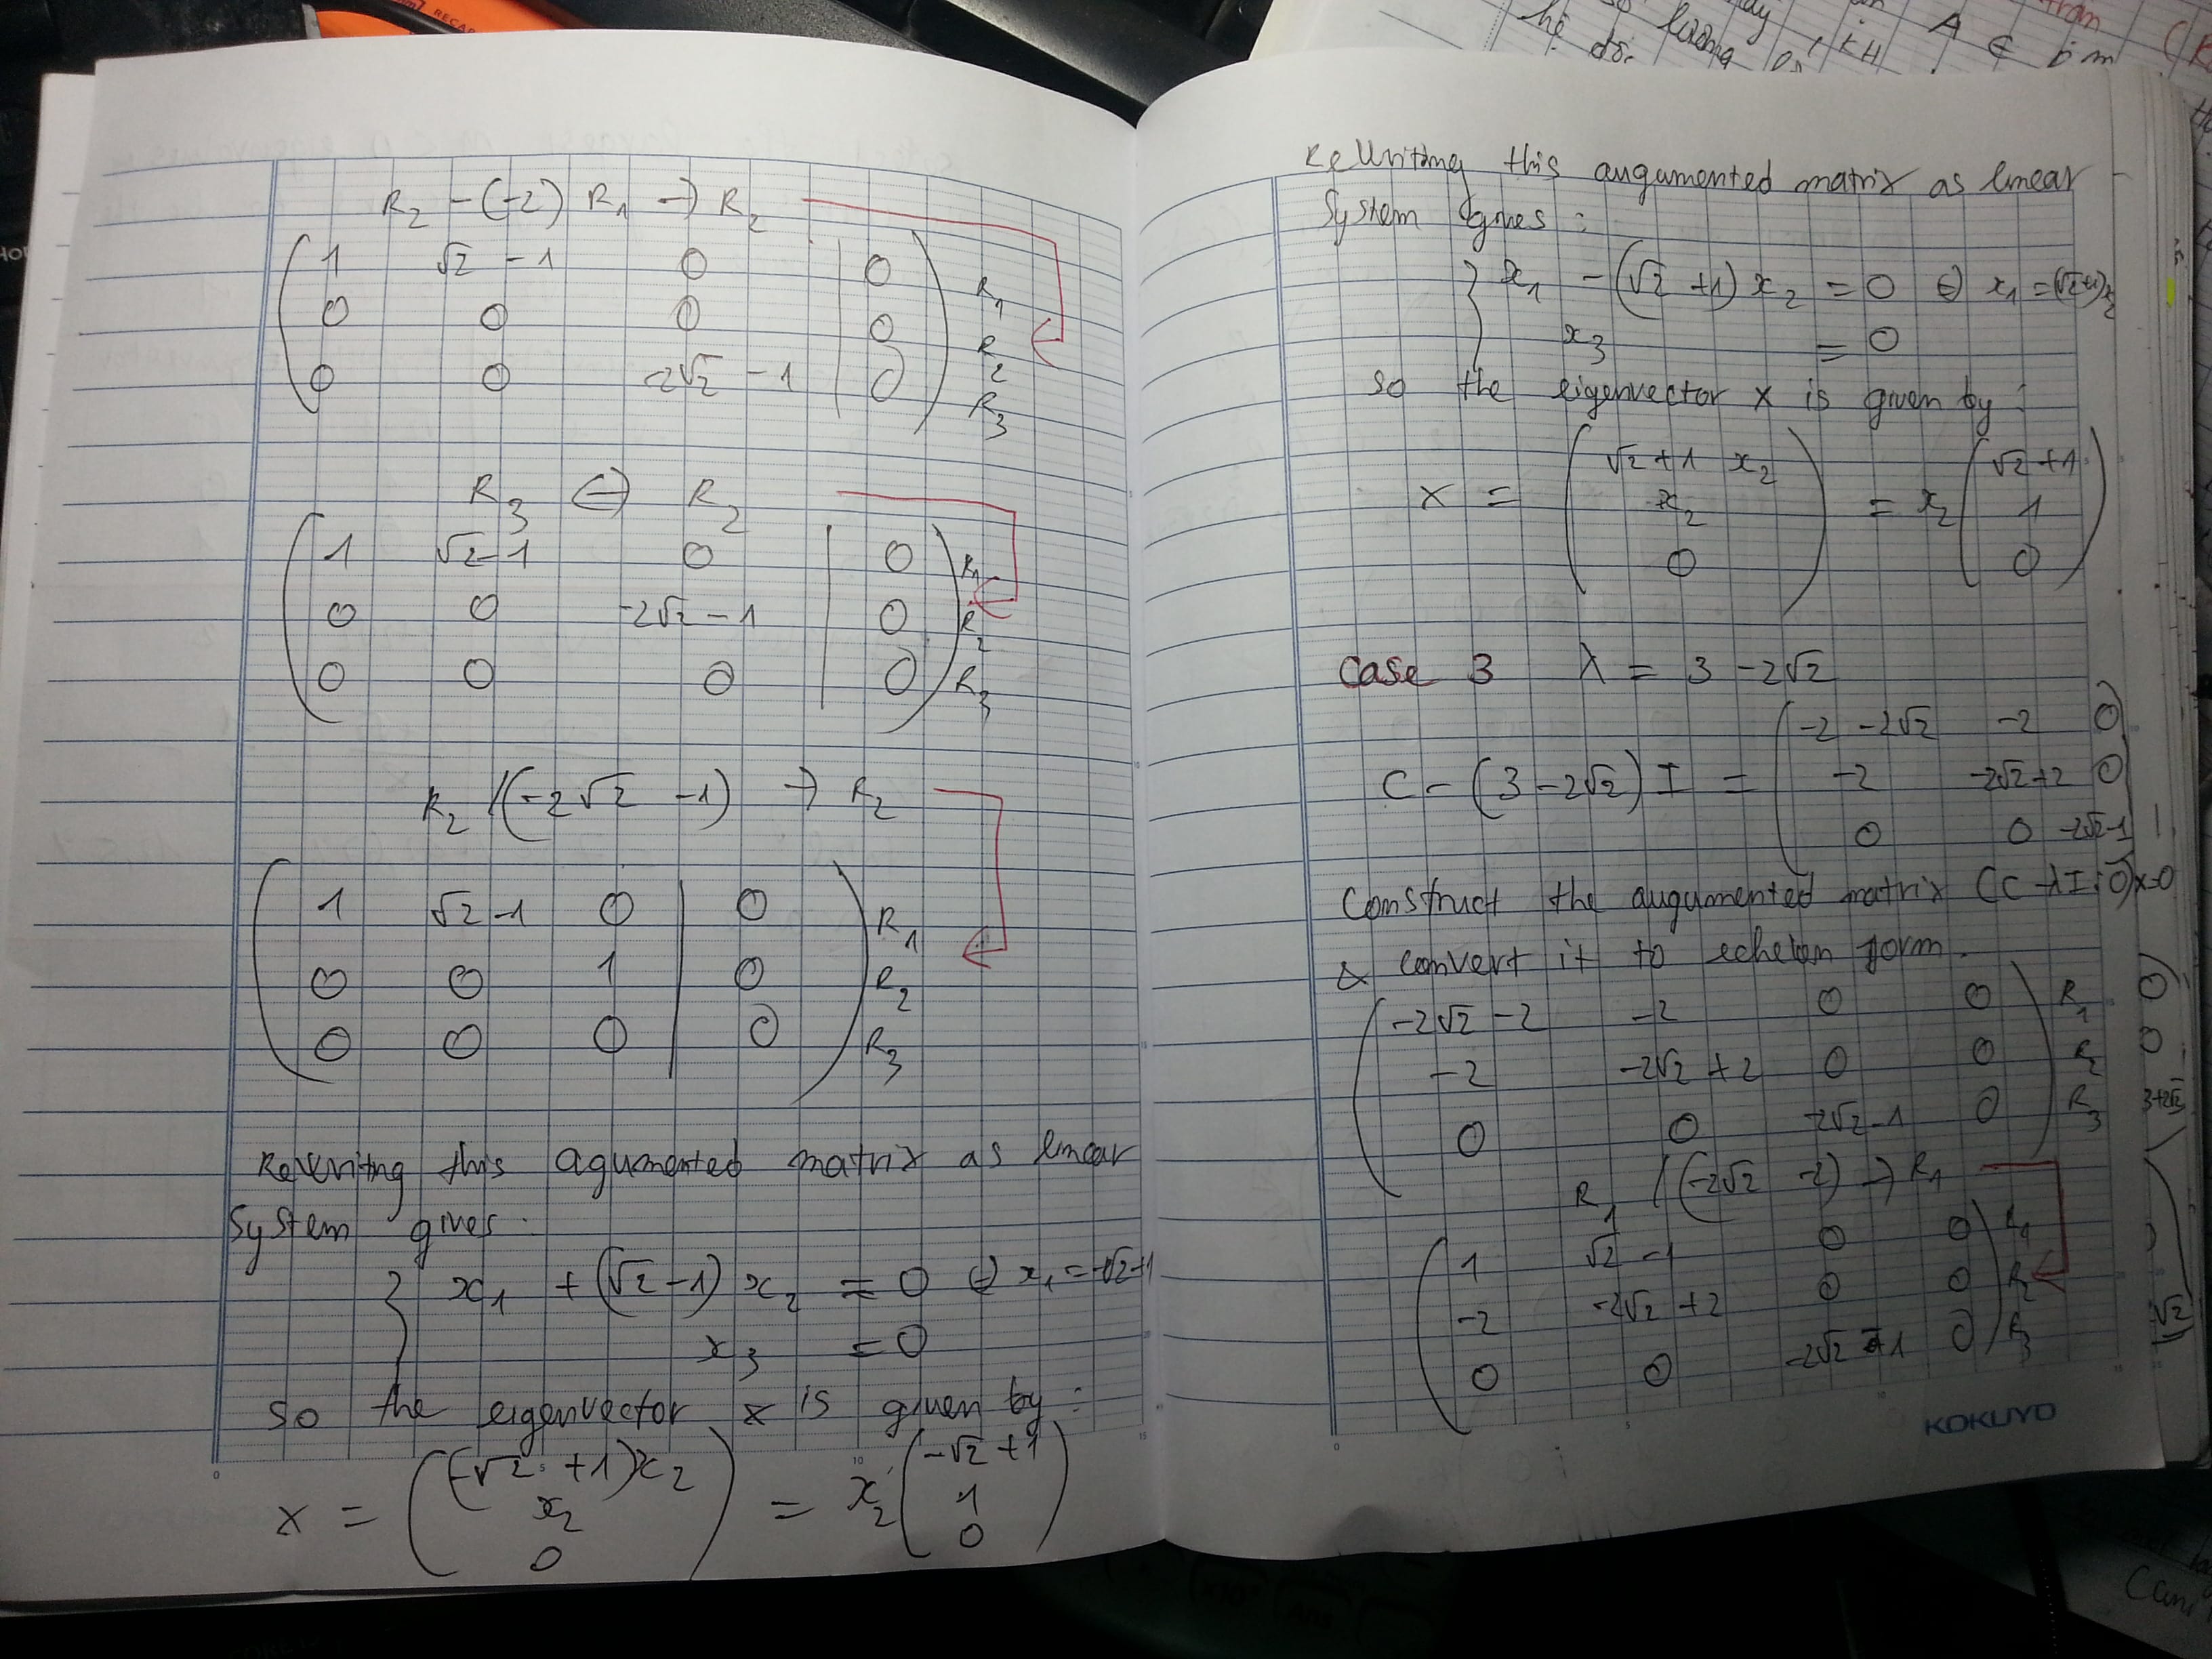 R₂ - (-2) R₁ → R₂
( 1 √2 - 1 0 | 0 ) R₁
( 0 0 0 | 0 ) R₂
( 0 0 -2√2 - 1 | 0 ) R₃
R₃ ↔ R₂
( 1 √2-1 0 | 0 ) R₁
( 0 0 -2√2 - 1 | 0 ) R₂
( 0 0 0 | 0 ) R₃
R₂ / (-2√2 - 1) → R₂
( 1 √2-1 0 | 0 ) R₁
( 0 0 1 | 0 ) R₂
( 0 0 0 | 0 ) R₃
Rewriting this agumented matrix as linear
system gives:
x₁ + (√2-1) x₂ = 0 ⇔ x₁ = -√2+1
x₃ = 0
so the eigenvector x is given by:
x = ( (-√2 +1)x₂ ) = x₂ ( -√2 +1 )
( x₂ ) ( 1 )
( 0 ) ( 0 )
Rewriting this augumented matrix as linear
system gives:
x₁ - (√2 +1) x₂ = 0 ⇔ x₁ = (√2+1)x₂
x₃ = 0
so the eigenvector x is given by:
x = ( √2+1 x₂ ) = x₂ ( √2+1 )
( x₂ ) ( 1 )
( 0 ) ( 0 )
Case 3 λ = 3 - 2√2
C - (3 - 2√2) I = ( -2 -2√2 -2 0 )
( -2 -2√2+2 0 )
( 0 0 -2√2-1 )
Construct the augumented matrix (C - λI : 0)x=0
& convert it to echelon form.
( -2√2 - 2 -2 0 0 ) R₁
( -2 -2√2 + 2 0 0 ) R₂
( 0 0 -2√2 -1 0 ) R₃
R₁ / (-2√2 -2) → R₁
( 1 √2 -1 0 0 ) R₁
( -2 -2√2 +2 0 0 ) R₂
( 0 0 -2√2 -1 0 ) R₃
KOKUYO